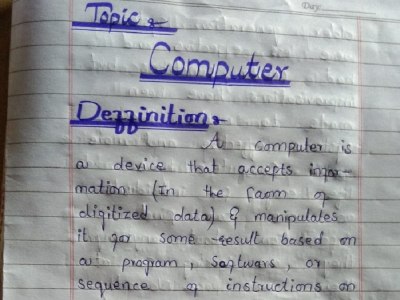 Day:
Topic :-
Computer
Deffinition :-
A computer is
a device that accepts infor-
mation (In the faom of
digitized data) & manipulates
it for some result based on
a program, Softwars, or
sequence of instructions on